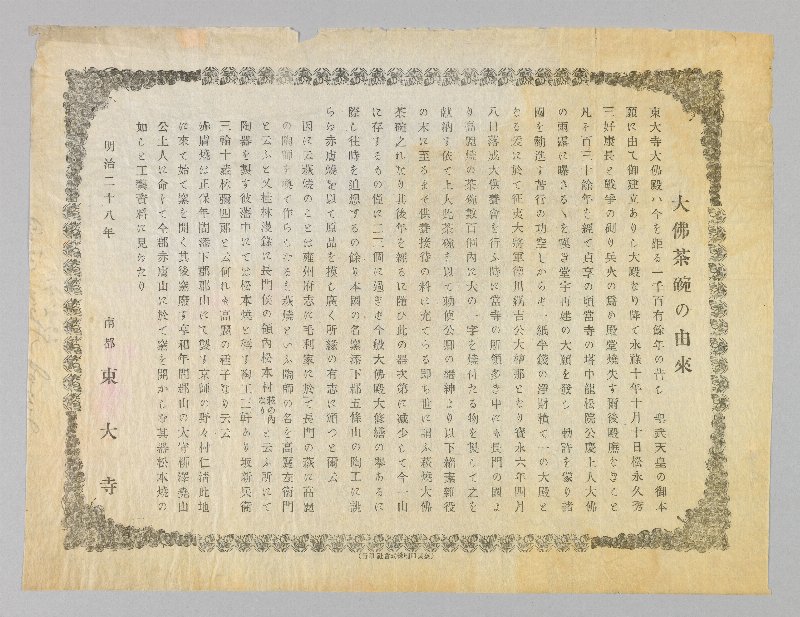 大佛茶碗の由來
東大寺大佛殿ハ今を距る一千百有餘年の昔し 聖武天皇の御本
願に由て御建立ありし大殿なり降て永祿十年十月十日松永久秀
三好康長と戰爭の砌り兵火の爲め殿堂燒失す爾後殿廊なきこと
凡そ百三十餘年を經て貞享の頃當寺の塔中龍松院公慶上人大佛
の雨露に曝さるゝを嘆き堂宇再建の大願を發し 勅許を蒙り諸
國を勧進す苦行の功空しからす一紙半錢の淨財積て一の大殿と
なる爰に於て征夷大將軍德川綱吉公大檀那となり寶永六年四月
八日落成大供養會を行ふ時に當寺の所領多き中にも長門の國よ
り高麗燒の茶碗數百個內に大の一字を燒付たる物を製して之を
獻納す依て上人此茶碗を以て勅使公卿の縉紳より以下結衆雜役
の末に至るまて供養接待の料に充てらる卽ち世に謂ふ萩燒大佛
茶碗之れなり其後年を經るに隨ひ此の器次第に减少して今一山
に存するもの僅に二三個に過きす今般大佛殿大修繕の擧あるに
際し往時を追想するの餘り本國の名窯添下郡五條山の陶工に誂
らへ赤膚燒を以て原品を模し廣く所緣の有志に頒つと爾云
因に云萩燒のことは雍州府志に毛利家に於て長門の萩に高麗
の陶師を喚て作らしむるを萩燒といふ陶師の名を高麗左衞門
と云ふと又桂林漫錄に長門侯の領內松本村萩の內なりと云ふ所にて
陶器を製す彼藩中にては松本燒と稱す陶工三軒あり坂新兵衞
三輪十藏松彌四郞と云何れも高麗の種子なり云云
赤膚燒は正保年間添下郡郡山にて製す京師の野々村仁淸此地
に來て始て窯を開く其後窯廢す享和年間郡山の太守柳澤堯山
公上人に命して仝郡赤膚山に於て窯を開かしむ其器松本燒の
如しと工藝資料に見へたり
明治二十八年
南都 東大寺